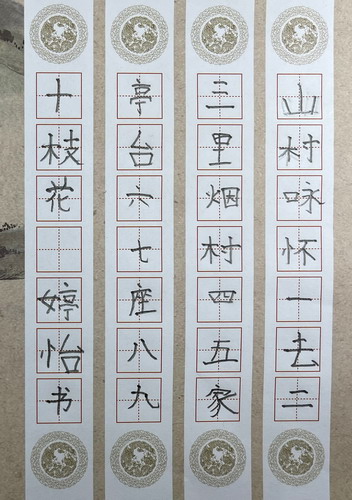 山村咏怀一去二
三里烟村四五家
亭台六七座八九
十枝花 婷怡书